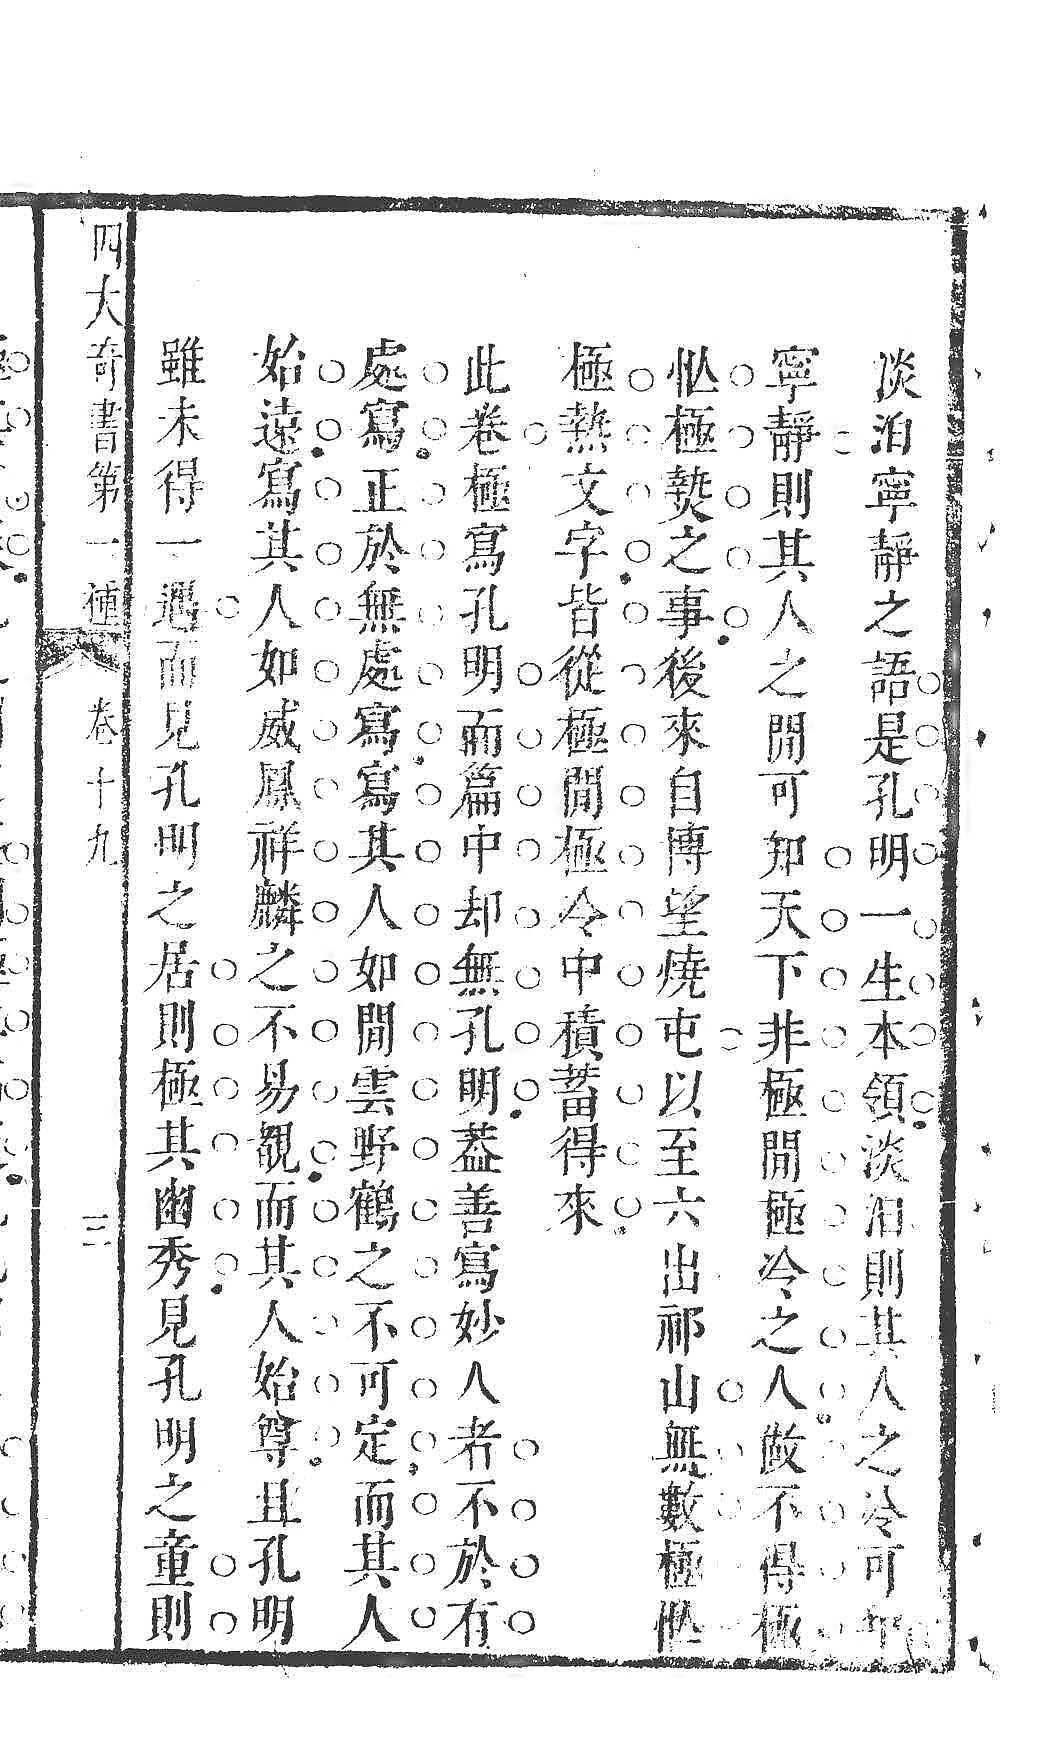 淡泊寧靜之語是孔明一生本領淡泊則其人之冷可知
寧靜則其人之閒可知天下非極閒極冷之人做不得極
忙極熱之事後來自博望燒屯以至六出祁山無數極忙
極熱文字皆從極閒極冷中積蓄得來
此卷極寫孔明而篇中却無孔明葢善寫妙人者不於有
處寫正於無處寫寫其人如閒雲野鶴之不可定而其人
始遠寫其人如威鳳祥麟之不易覩而其人始尊且孔明
雖未得一遇而見孔明之居則極其幽秀見孔明之童則
四大奇書第一種 卷十九 三